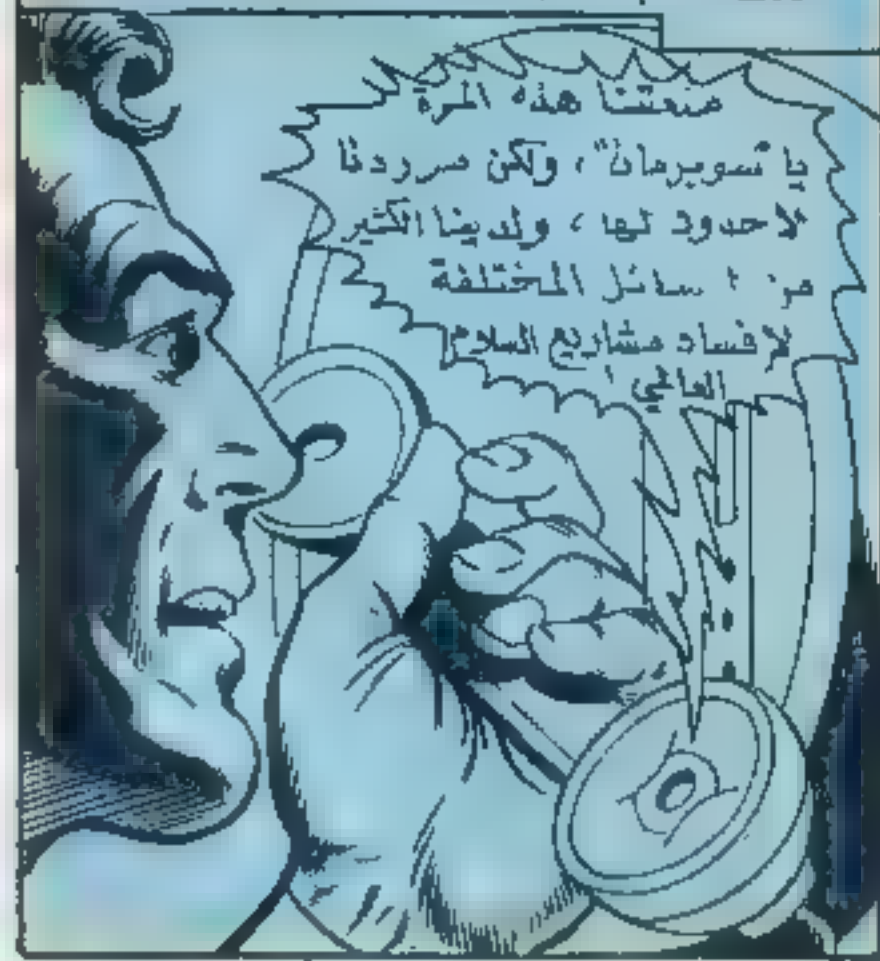 منعتنا هذه المرة
يا "سوبرمان"، ولكن مرردنا
لاحدود لها، ولدينا الكثير
المختلفة
لإفساد مشاريع السلام
العالمي